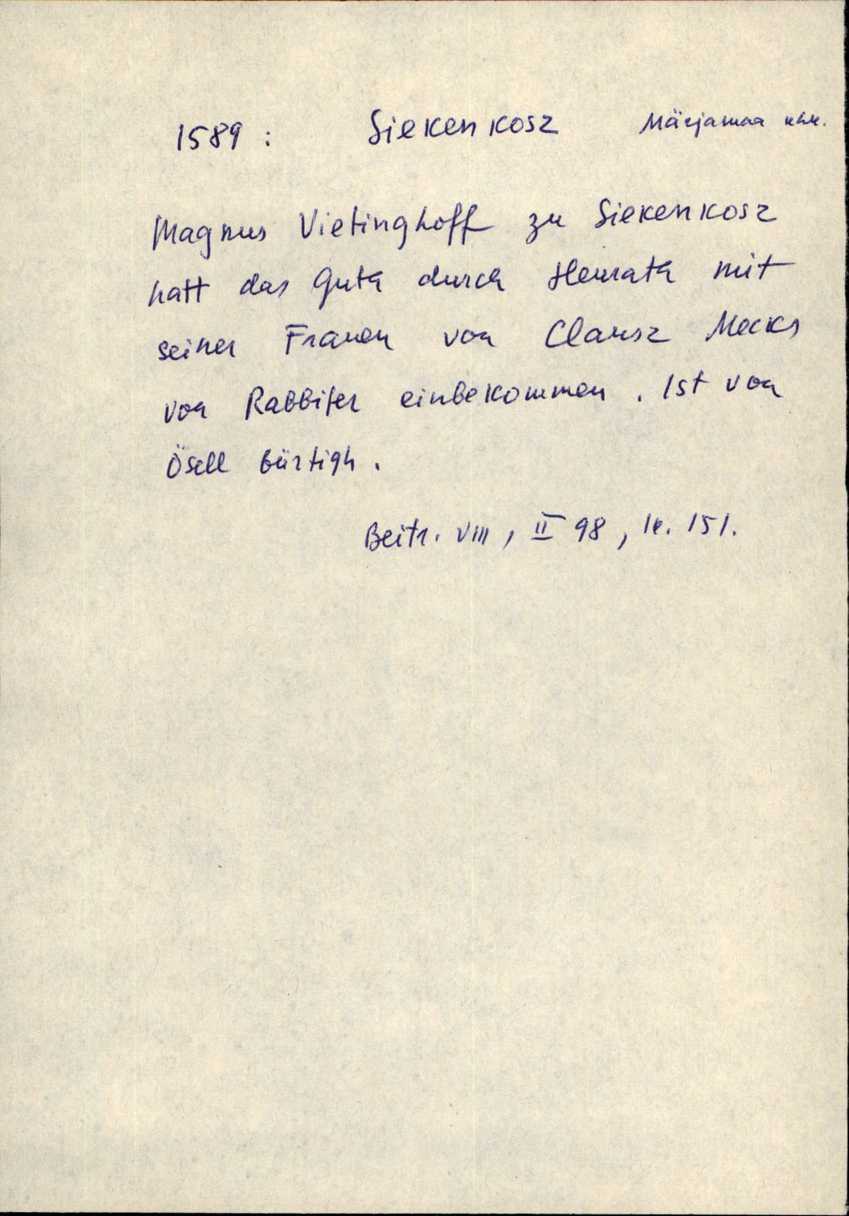 1589 : Siekenkosz Märjamaa khk.
Magnus Vietinghoff zu Siekenkosz
hatt das Guth durch Heurath mit
seiner Frauen von Clausz Mecks
von Rabbifer einbekommen. Ist von
Ösell bürtigh.
Beitr. VIII, II 98, lk. 151.